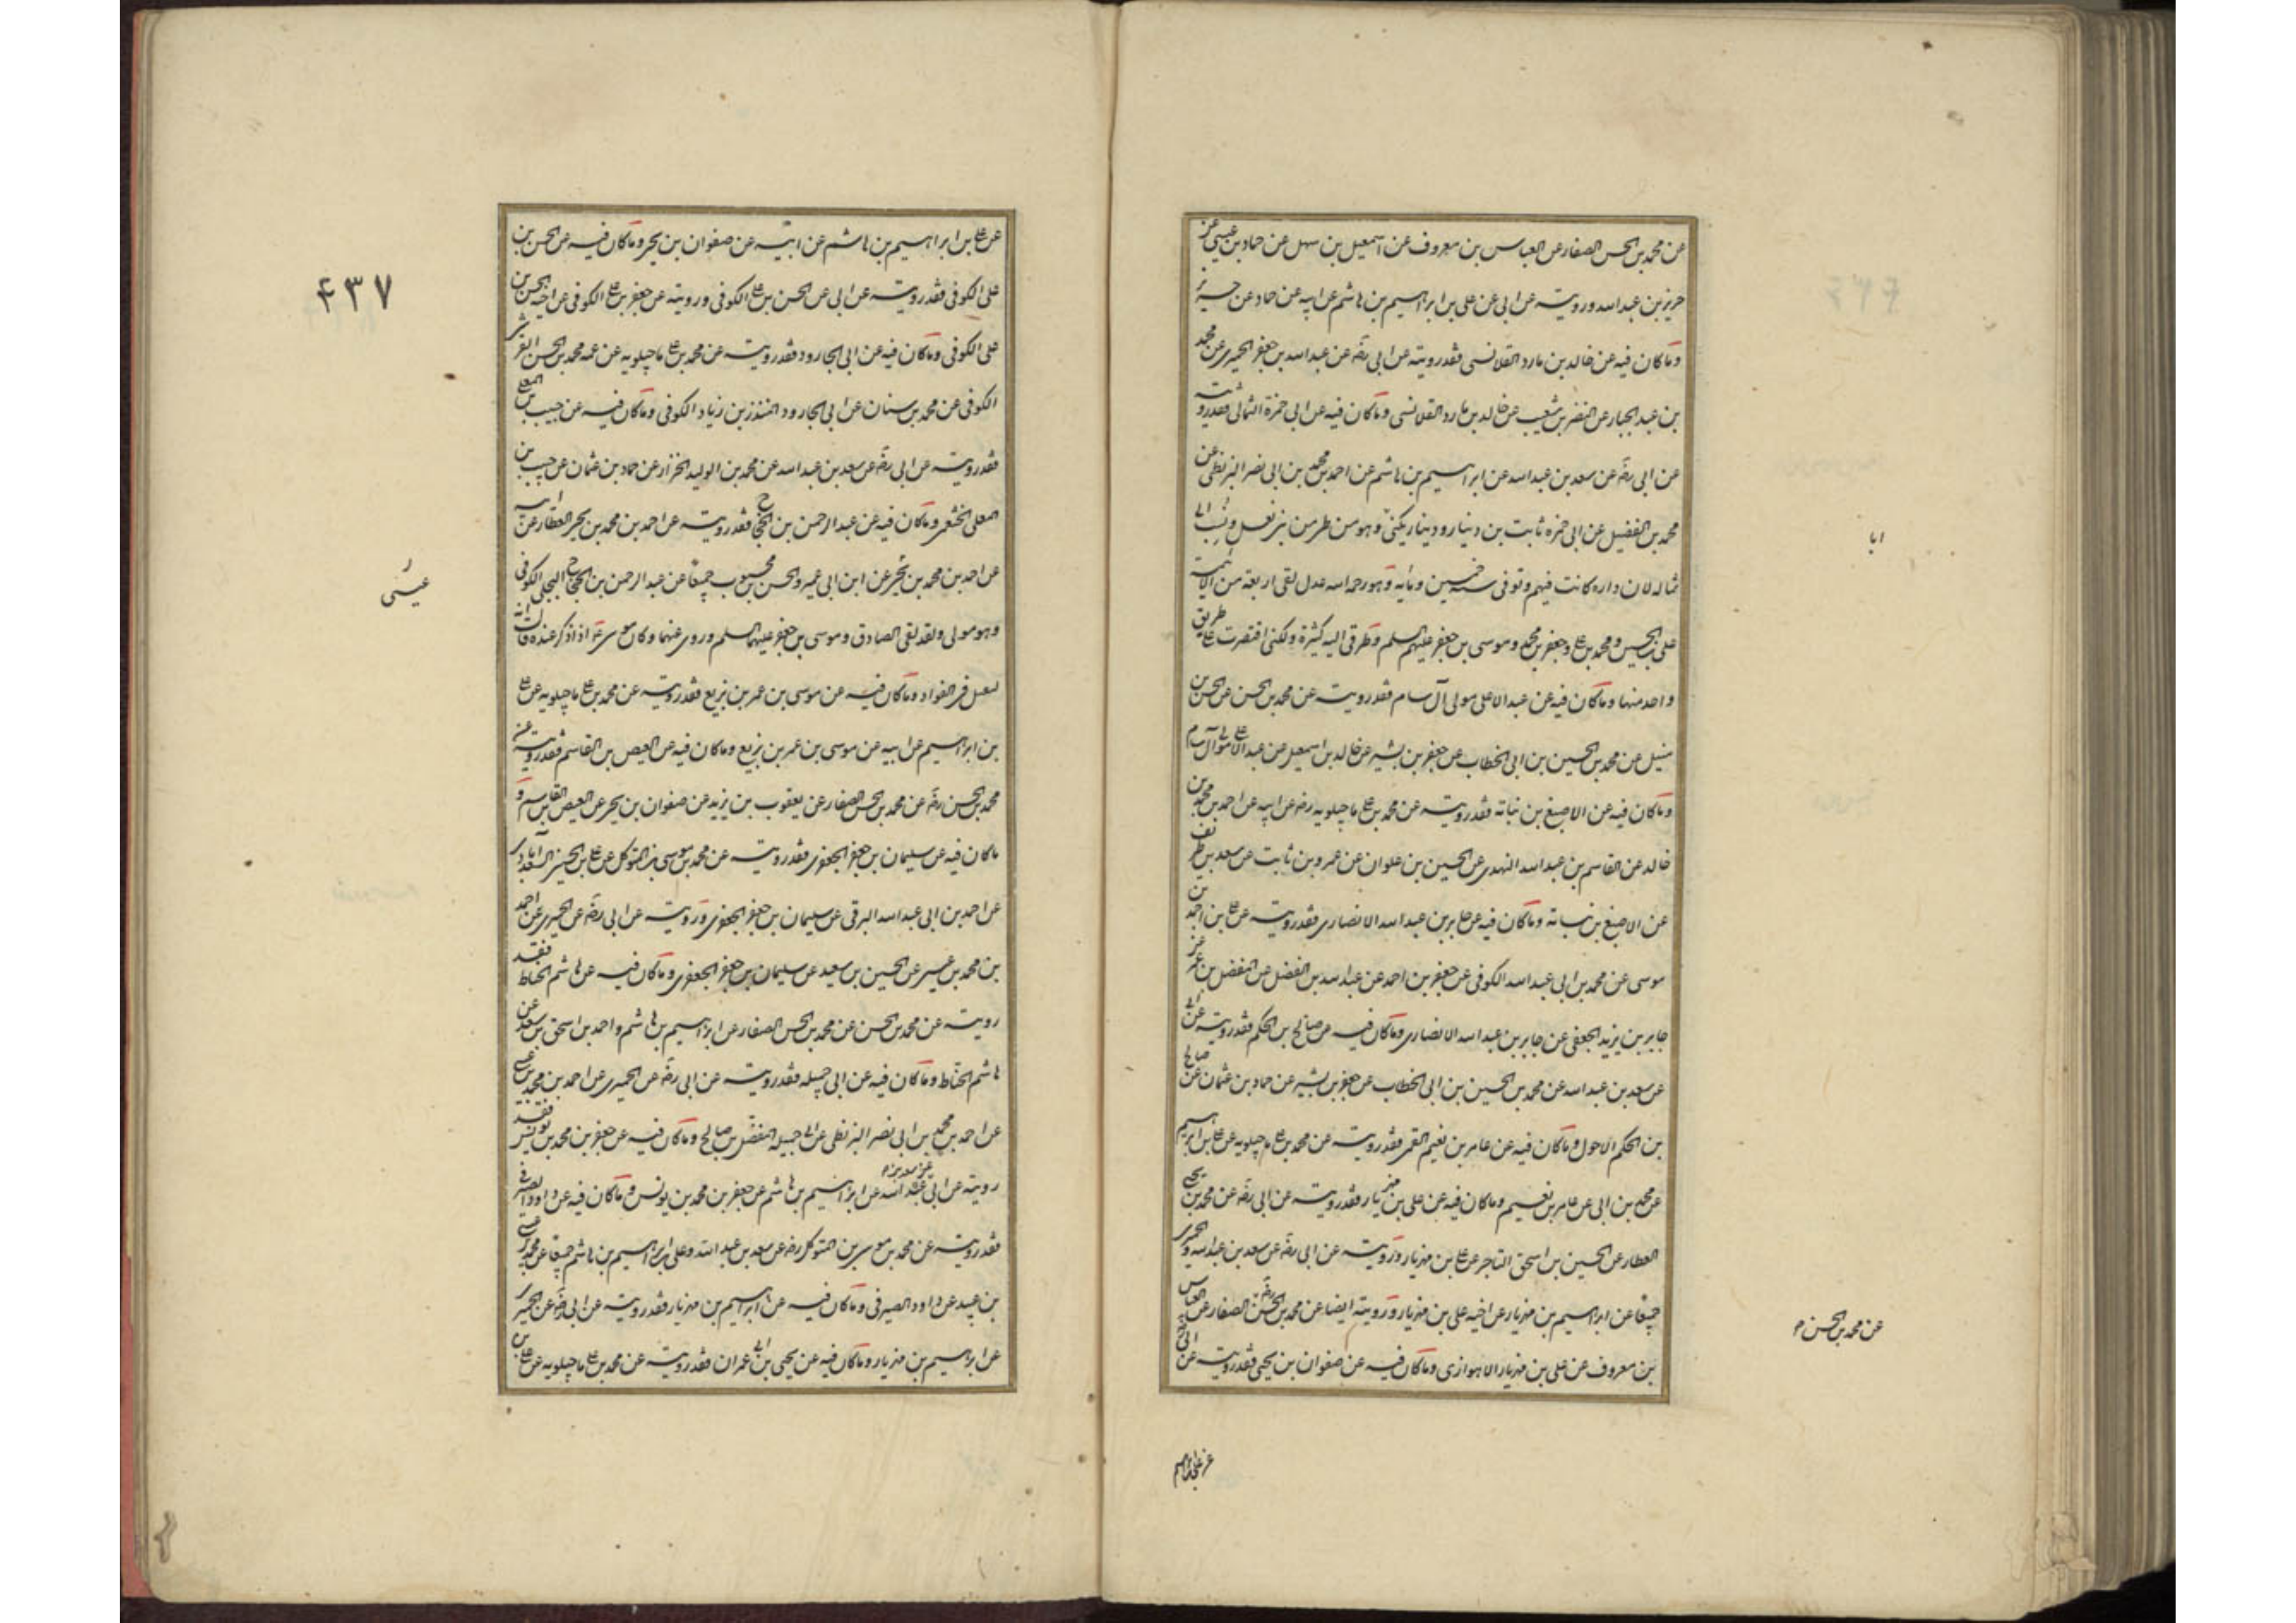 عن محمد بن الحسن الصفار عن العباس بن معروف عن اسمعيل بن سهل عن حماد بن عيسى عن
حريز بن عبد الله ورويته عن ابى عن على بن ابراهيم بن هاشم عن ابيه عن حماد عن حريز
وما كان فيه عن خالد بن مارد القلانسى فقد رويته عن ابى رضه عن عبد الله بن جعفر الحميرى عن محمد
بن عبد الجبار عن النضر بن شعيب عن خالد بن مارد القلانسى وما كان فيه عن ابى حمزة الثمالى فقد رويته
عن ابى رضه عن سعد بن عبد الله عن ابراهيم بن هاشم عن احمد بن محمد بن ابى نصر البزنطى عن
محمد بن الفضيل عن ابى حمزه ثابت بن دينار ودينار يكنى وهو من طى من بنى ثعل ونسب الى
ثماله لان داره كانت فيهم وتوفى سنه خمسين ومايه وهو رحمه الله عدل لقى اربعة من الائمة
على بن الحسين ومحمد بن على وجعفر بن محمد وموسى بن جعفر عليهم السلم وطرقى اليه كثيرة ولكنى اقتصرت على طريق
واحد منها وما كان فيه عن عبد الاعلى مولى آل سام فقد رويته عن محمد بن الحسن عن الحسن بن
متيل عن محمد بن الحسين بن ابى الخطاب عن جعفر بن بشير عن خالد بن اسمعيل عن عبد الاعلى مولى آل سام
وما كان فيه عن الاصبغ بن نباته فقد رويته عن محمد بن على ماجيلويه رضه عن ابيه عن احمد بن محمد بن
خالد عن القاسم بن عبد الله النهدى عن الحسين بن علوان عن عمرو بن ثابت عن سعد بن طريف
عن الاصبغ بن نباتة وما كان فيه عن جابر بن عبد الله الانصارى فقد رويته عن على بن احمد بن
موسى عن محمد بن ابى عبد الله الكوفى عن جعفر بن احمد عن عبد الله بن الفضل عن المفضل بن عمر عن
جابر بن يزيد الجعفى عن جابر بن عبد الله الانصارى وما كان فيه عن صالح بن الحكم فقد رويته عن ابى
عن سعد بن عبد الله عن محمد بن الحسين بن ابى الخطاب عن جعفر بن بشير عن حماد بن عثمان عن صالح
بن الحكم الاحول وما كان فيه عن عامر بن نعيم القمى فقد رويته عن محمد بن على ماجيلويه عن على بن ابراهيم
عن محمد بن ابى عن عامر بن نعيم وما كان فيه عن على بن مهزيار فقد رويته عن ابى رضه عن محمد بن يحيى
العطار عن الحسين بن اسحق التاجر عن على بن مهزيار ورويته عن ابى رضه عن سعد بن عبد الله والحميرى
جميعا عن ابراهيم بن مهزيار عن اخيه على بن مهزيار ورويته ايضا عن محمد بن الحسن رضه الصفار عن العباس
بن معروف عن على بن مهزيار الاهوازى وما كان فيه عن صفوان بن يحيى فقد رويته عن ابى
ابا
عن محمد بن الحسن م
عن على بن ابراهيم
عن على بن ابراهيم بن هاشم عن ابيه عن صفوان بن يحيى وما كان فيه عن الحسن بن
على الكوفى فقد رويته عن ابى عن الحسن بن على الكوفى ورويته عن جعفر بن على الكوفى عن الحسن بن
على الكوفى وما كان فيه عن ابى الجارود فقد رويته عن محمد بن على ماجيلويه عن عمه محمد بن الحسن القرشى
الكوفى عن محمد بن سنان عن ابى الجارود المنذر بن زياد الكوفى وما كان فيه عن حبيب بن المعلى
فقد رويته عن ابى رضه عن سعد بن عبد الله عن محمد بن الوليد الخزاز عن حماد بن عثمان عن حبيب بن
المعلى الخثعمى وما كان فيه عن عبد الرحمن بن الحجاج فقد رويته عن احمد بن محمد بن يحيى العطار عن ابيه
عن احمد بن محمد بن عن ابن ابى عمير والحسن بن محبوب جميعا عن عبد الرحمن بن الحجاج البجلى الكوفى
وهو مولى ولقد لقى الصادق وموسى بن جعفر عليهما السلم وروى عنهما وكان موسى ع اذا ذكر عنده قال انه
لثقيل فى الفواد وما كان فيه عن موسى بن عمر بن بزيع فقد رويته عن محمد بن على ماجيلويه عن على
بن ابراهيم عن ابيه عن موسى بن عمر بن بزيع وما كان فيه عن العيص بن القاسم فقد رويته عن
محمد بن الحسن رضه عن محمد بن الحسن الصفار عن يعقوب بن يزيد عن صفوان بن يحيى عن العيص بن القاسم و
ما كان فيه عن سليمان بن جعفر الجعفرى فقد رويته عن محمد بن موسى بن المتوكل عن على بن الحسين السعدابادى
عن احمد بن ابى عبد الله البرقى عن سليمان بن جعفر الجعفرى ورويته عن ابى رضه عن الحميرى عن احمد
بن محمد بن عيسى عن الحسين بن سعيد عن سليمان بن جعفر الجعفرى وما كان فيه عن هاشم الحناط فقد
رويته عن محمد بن الحسن عن محمد بن الحسن الصفار عن ابراهيم بن هاشم واحمد بن اسحق بن سعد عن
هاشم الحناط وما كان فيه عن ابى جميله فقد رويته عن ابى رضه عن الحميرى عن احمد بن محمد بن عيسى
عن احمد بن محمد بن ابى نصر البزنطى عن ابى جميله المفضل بن صالح وما كان فيه عن جعفر بن محمد بن يونس فقد
رويته عن ابى عن سعد بن عبد الله عن ابراهيم بن هاشم عن جعفر بن محمد بن يونس وما كان فيه عن داود الصيرفى
فقد رويته عن محمد بن موسى بن المتوكل رضه عن سعد بن عبد الله وعلى بن ابراهيم بن هاشم جميعا عن محمد بن عيسى
بن عبيد عن داود الصيرفى وما كان فيه عن ابراهيم بن مهزيار فقد رويته عن ابى رضه عن الحميرى
عن ابراهيم بن مهزيار وما كان فيه عن يحيى بن ابى عمران فقد رويته عن محمد بن على ماجيلويه عن على بن
۴۳۷